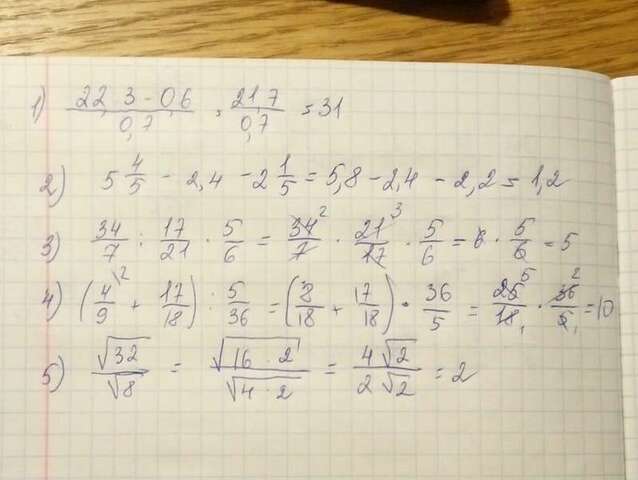 1) (22,3-0,6)/0,7 = 21,7/0,7 = 31
2) 5 4/5 - 2,4 - 2 1/5 = 5,8 - 2,4 - 2,2 = 1,2
3) 34/7 : 17/21 · 5/6 = 34²/7 · 21³/17 · 5/6 = 6 · 5/6 = 5
4) (4\²/9 + 17/18) : 5/36 = (8/18 + 17/18) · 36/5 = 25⁵/18₁ · 36²/5₁ = 10
5) √32/√8 = √(16·2)/√(4·2) = 4√2/2√2 = 2